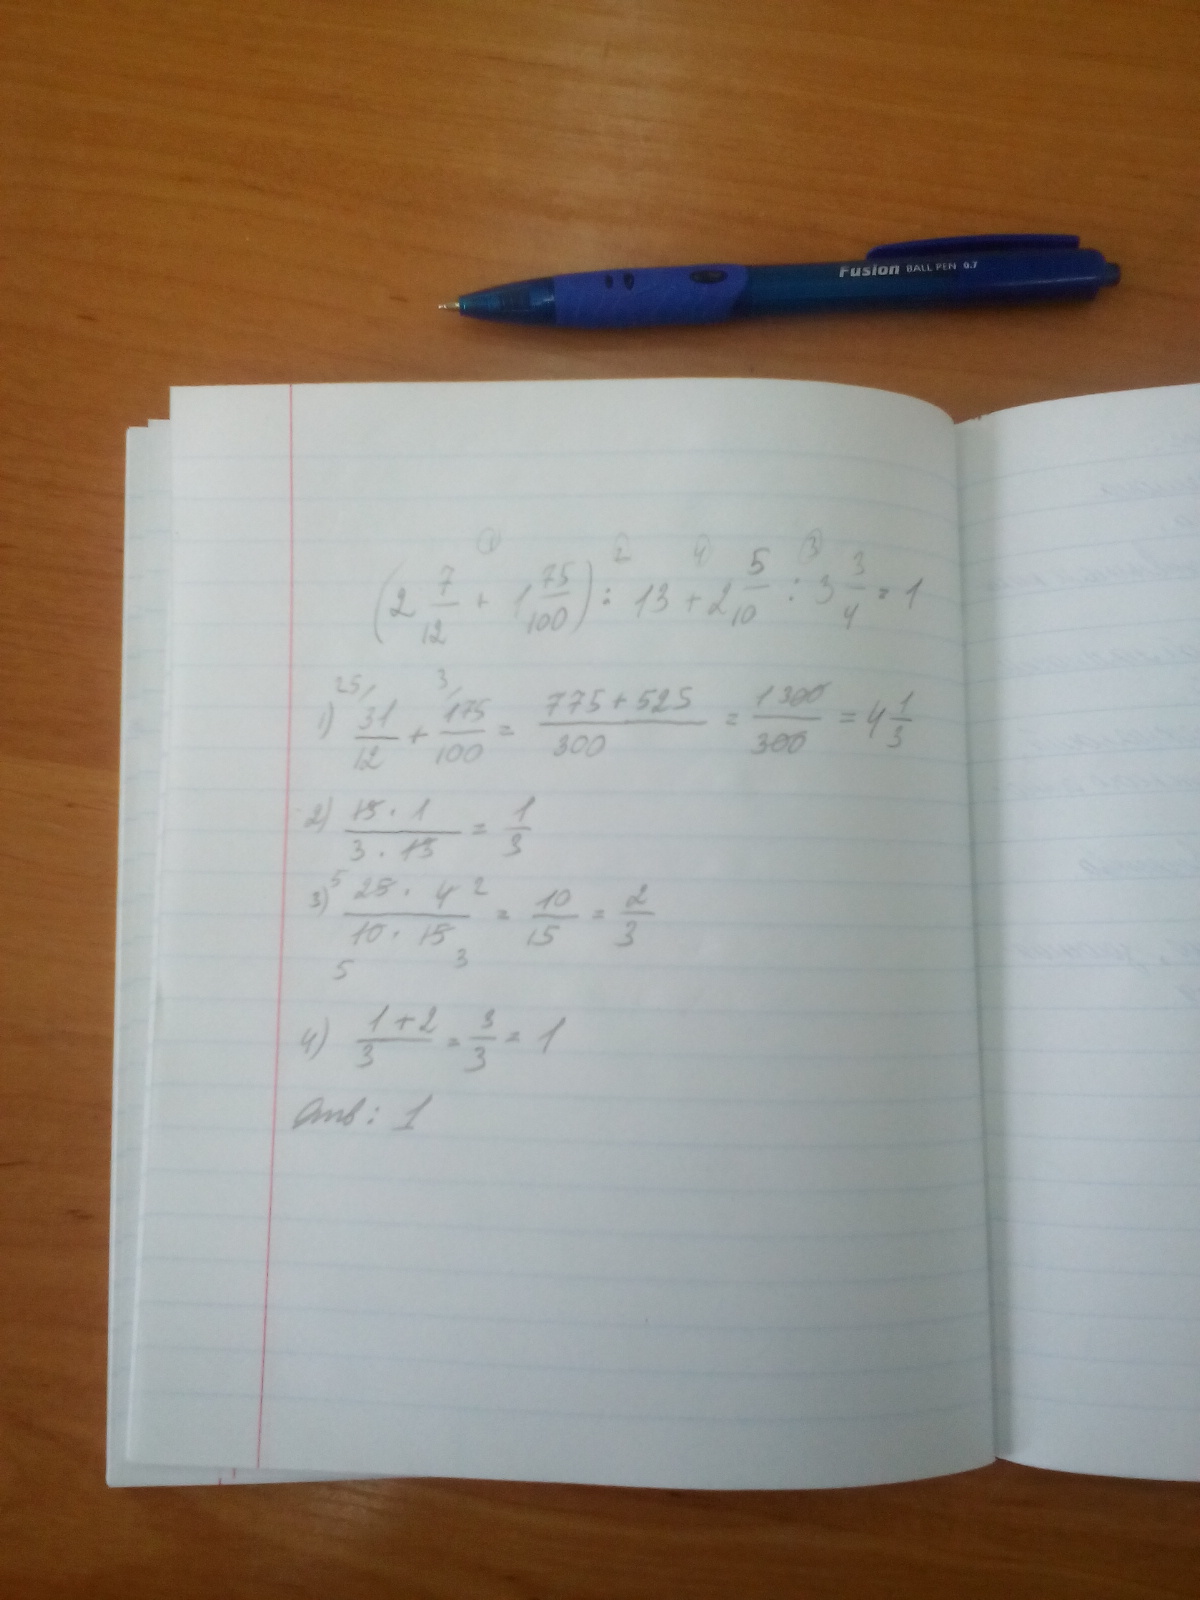 Fusion BALL PEN 0.7
① 2 4 ③
(2 7/12 + 1 75/100) : 13 + 2 5/10 : 3 3/4 = 1
1) 31/12 + 175/100 = 775+525/300 = 1300/300 = 4 1/3
2) 13 · 1 / 3 · 13 = 1/3
3) 25 · 4 / 10 · 15 = 10/15 = 2/3
4) 1+2/3 = 3/3 = 1
Отв: 1